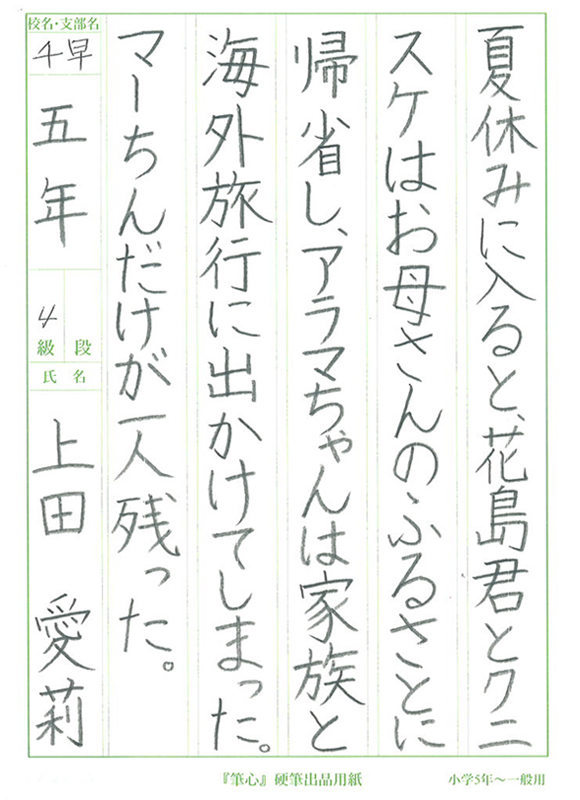 夏休みに入ると、花島君とクニ
スケはお母さんのふるさとに
帰省し、アラマちゃんは家族と
海外旅行に出かけてしまった。
マーちんだけが一人残った。
校名・支部名
4早
五年
4
級 段
氏 名
上田 愛莉
『筆心』硬筆出品用紙
小学5年〜一般用